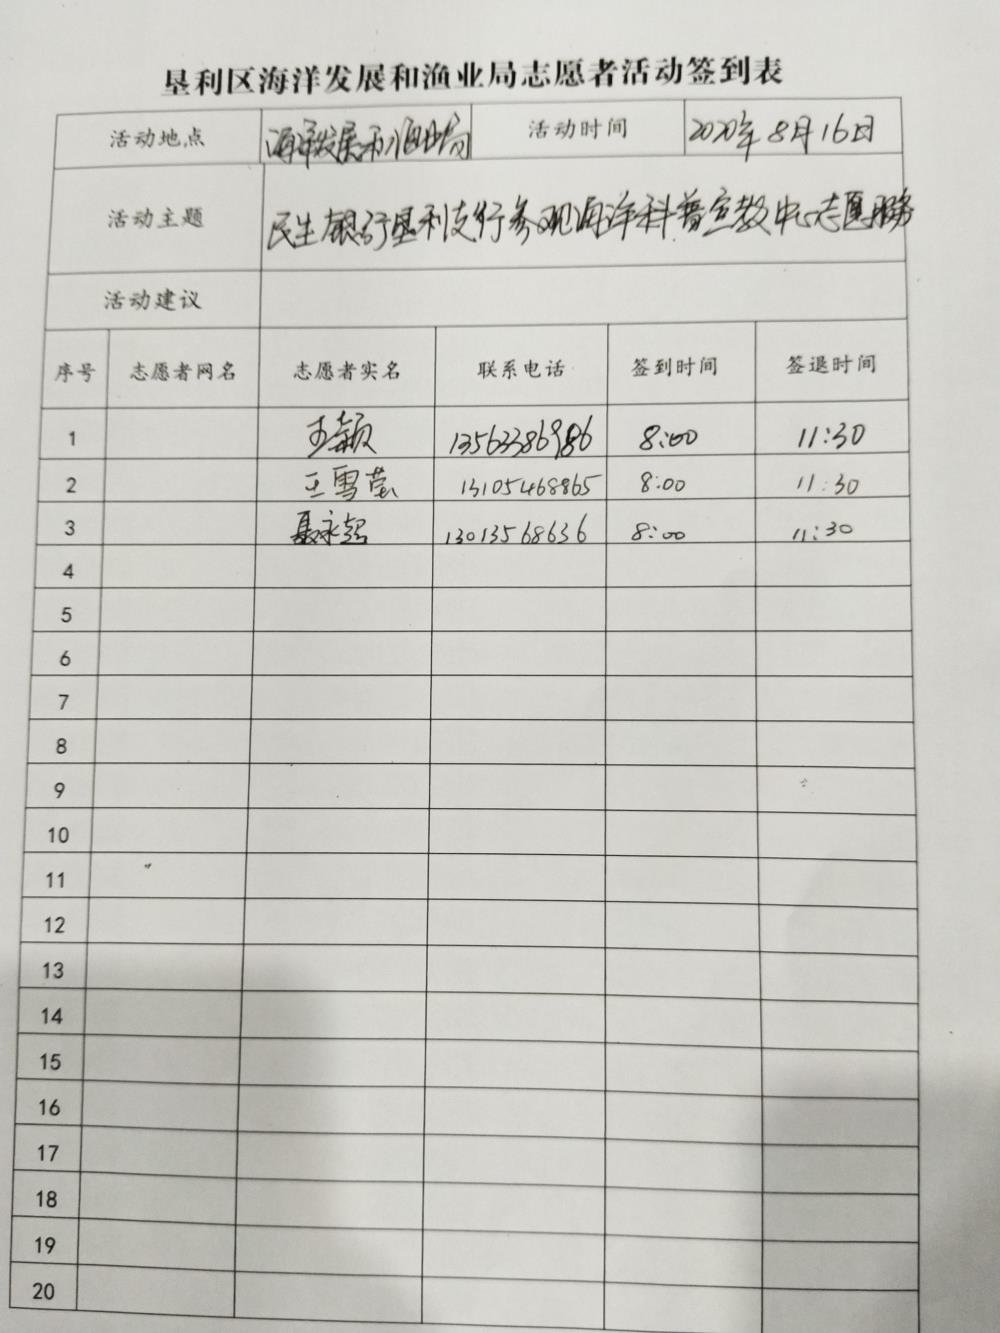 垦利区海洋发展和渔业局志愿者活动签到表
活动地点 海洋发展和渔业局 活动时间 2020年8月16日
活动主题 民生银行垦利支行参观海洋科普宣教中心志愿服务
活动建议
序号 志愿者网名 志愿者实名 联系电话 签到时间 签退时间
1 王颖 13563386986 8:00 11:30
2 王雪莹 13105468865 8:00 11:30
3 聂永超 13013568636 8:00 11:30
4
5
6
7
8
9
10
11
12
13
14
15
16
17
18
19
20